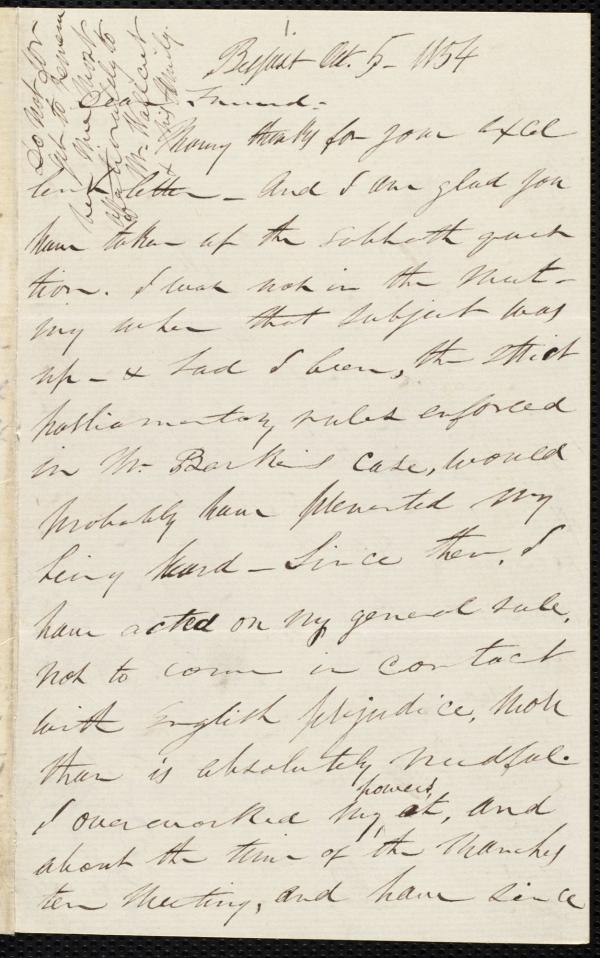 1.
Belfast Oct. 5- 1854
Dear Friend-
Many thanks for your excel
lent letter - And I am glad you
have taken up the Sabbath ques
tion. I was not in the Meet-
ing when that subject was
up - & had I been, the strict
parliamentary rules enforced
in Mr. Barker's case, would
probably have prevented my
being heard - Since then, I
have acted on my general rule,
not to come in contact
with English prejudice, more
than is absolutely needful.
I overworked my powers at, and
about the time of the Manches
ter Meeting, and have since
Do not for
get to remem
ber me most
affectionately to
Mr. Wallcut
& his family.